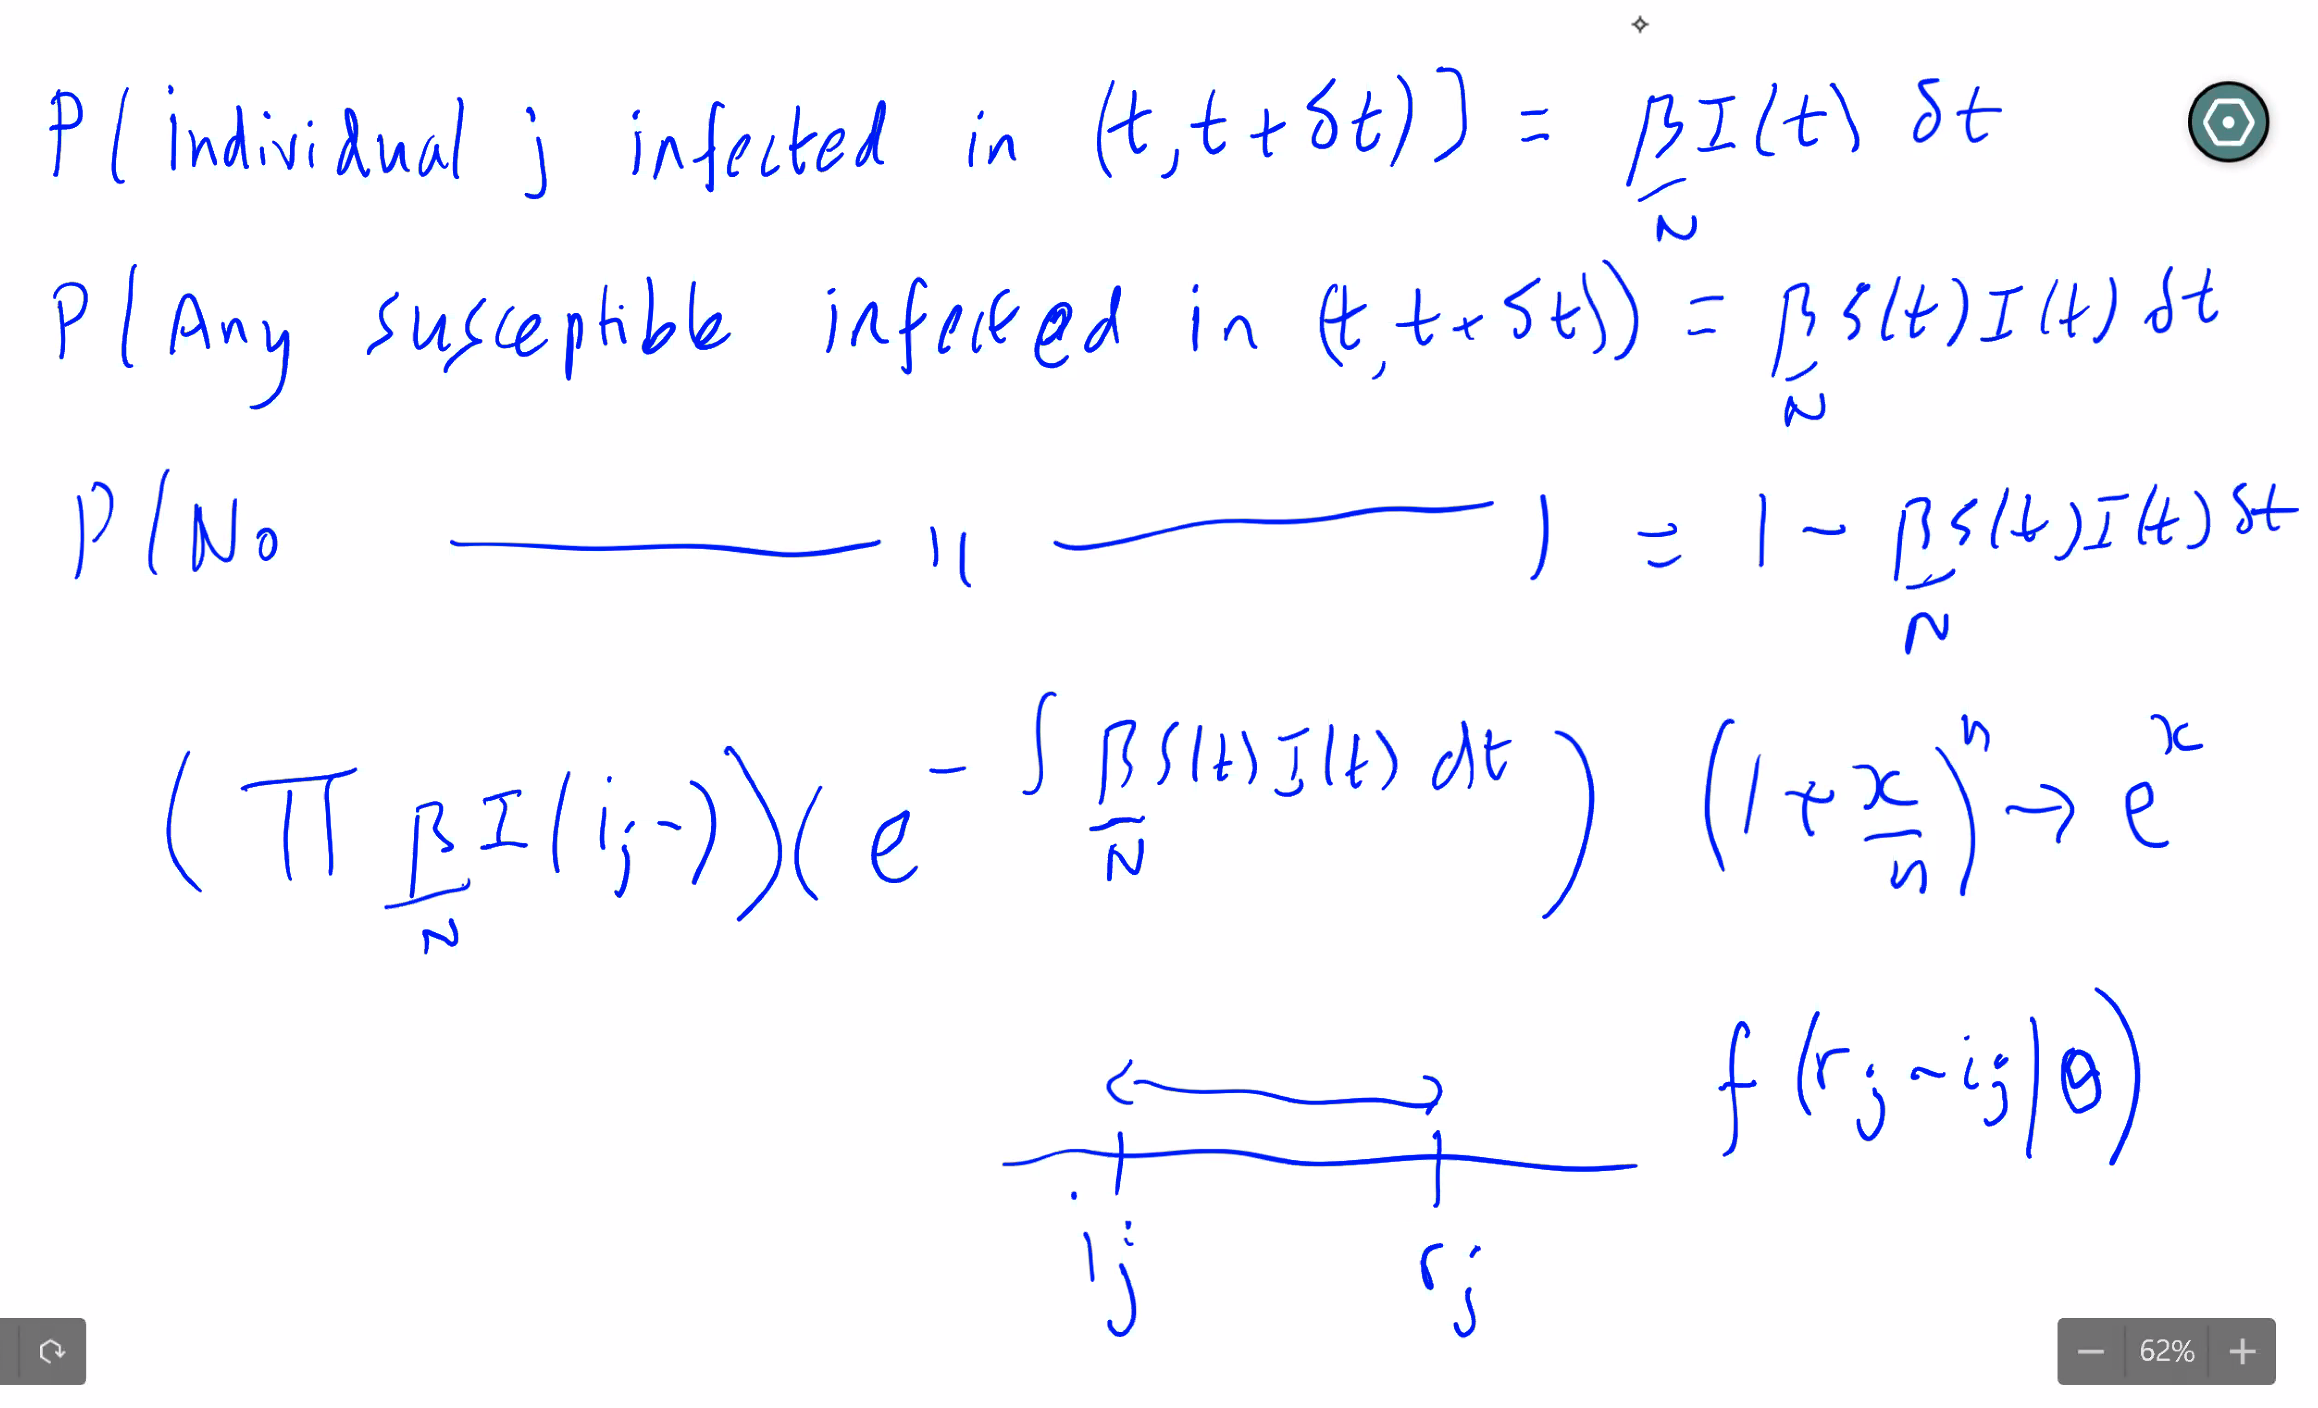 P(individual j infected in (t, t + δt)) = β/N I(t) δt
P(Any susceptible infected in (t, t + δt)) = β/N S(t) I(t) δt
P(No ——— " ———) = 1 - β/N S(t) I(t) δt
(∏ β/N I(i_j -)) (e^{- ∫ β/N S(t) I(t) dt}) (1 + x/n)^n → e^x
f(r_j - i_j | θ)
i_j r_j
62%